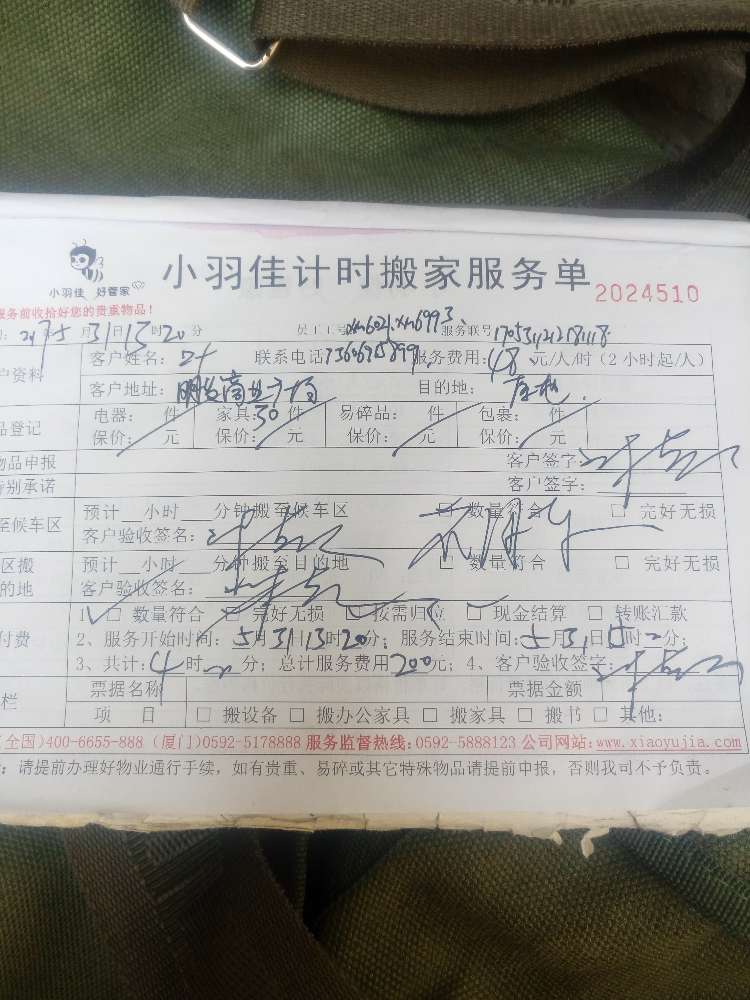 小羽佳计时搬家服务单
小羽佳 好管家
2024510
服务前收拾好您的贵重物品!
月31日13时20分 员工号 服务联号
户资料 客户姓名:叶 联系电话 服务费用:48元/人/时(2小时起/人)
客户地址:明发商业广场 目的地:
品登记 电器: 件 家具:30件 易碎品: 件 包裹: 件
保价: 元 保价: 元 保价: 元 保价: 元
物品申报 客户签字:
特别承诺 客户签字:
至候车区 预计 小时 分钟搬至候车区 □ 数量符合 □ 完好无损
客户验收签名:
区搬 预计 小时 分钟搬至目的地 □ 数量符合 □ 完好无损
的地 客户验收签名:
1、□ 数量符合 □ 完好无损 □ 按需归位 □ 现金结算 □ 转账汇款
付费 2、服务开始时间:5月31日13时20分;服务结束时间:5月31日15时 分;
3、共计:4时 分;总计服务费用200元;4、客户验收签字:
栏 票据名称 票据金额
项 目 □ 搬设备 □ 搬办公家具 □ 搬家具 □ 搬书 □ 其他:
(全国)400-6655-888 (厦门)0592-5178888 服务监督热线:0592-5888123 公司网站:www.xiaoyujia.com
:请提前办理好物业通行手续,如有贵重、易碎或其它特殊物品请提前申报,否则我司不予负责。